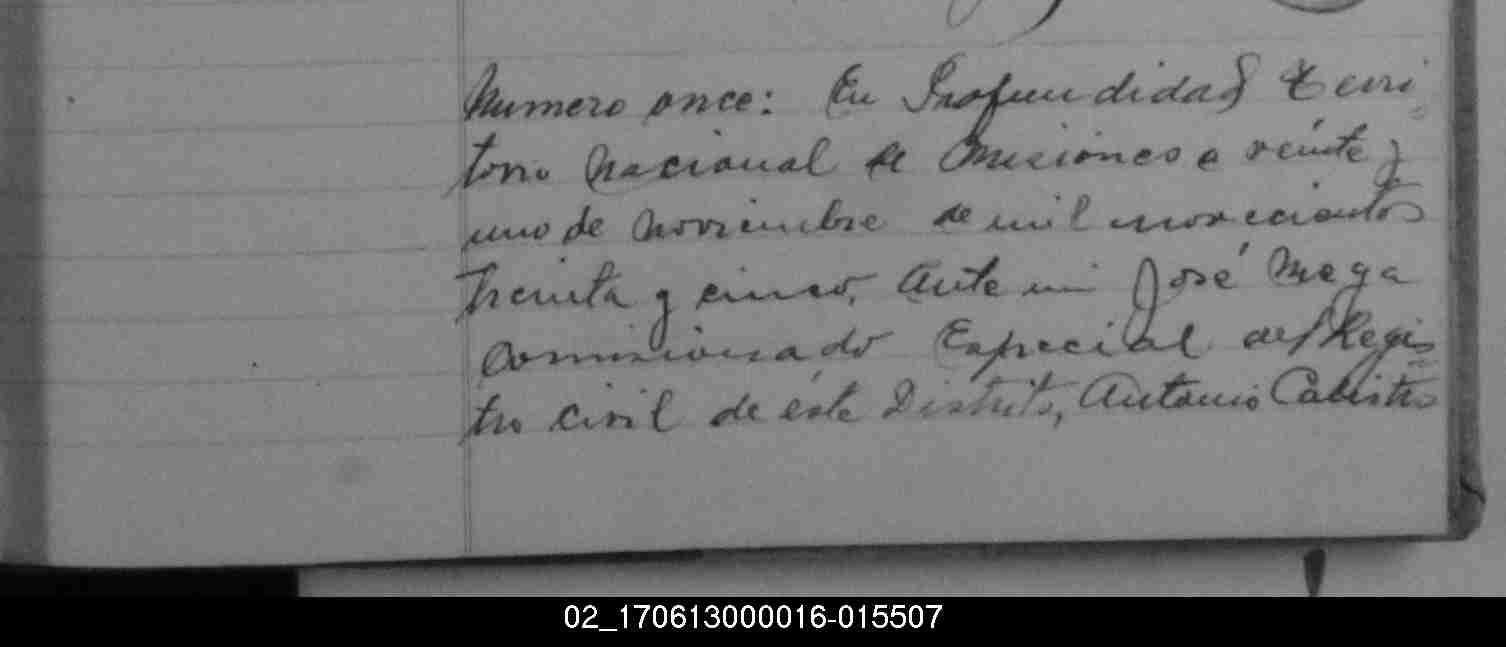 Numero once: En Profundidad Terri=
torio Nacional de Misiones a veinte y
uno de Noviembre de mil novecientos
treinta y cinco, Ante mi José Meza
Comisionado Especial del Regis=
tro civil de éste Distrito, Antonio
02_170613000016-015507